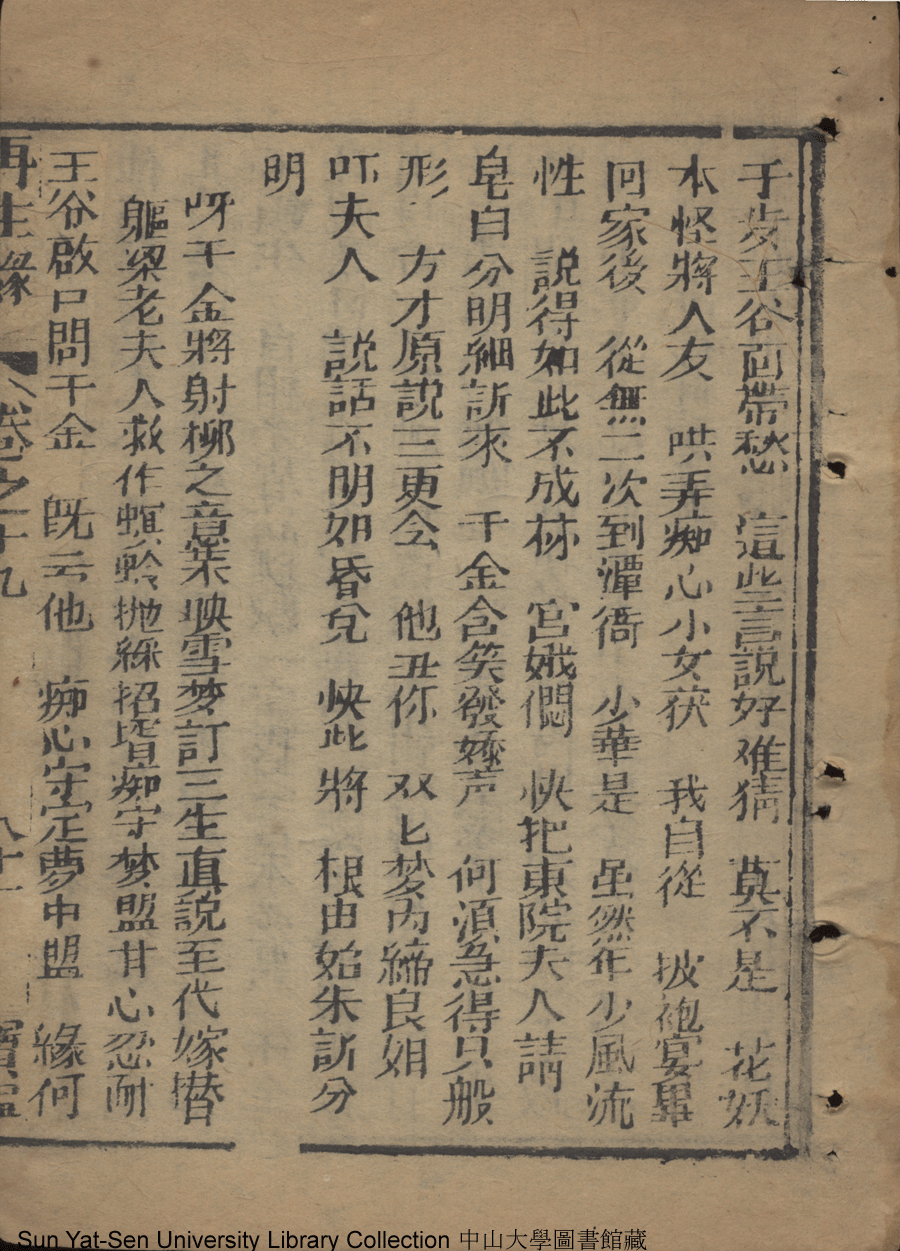 千歲王爷面帶愁 這些言說好难猜 莫不是 花妖
本怪將人友 哄弄痴心小女莰 我自從 披袍宴畢
回家後 從無二次到潭衙 少華是 虽然年少風流
性 說得如此不成材 宮娥們 快把東院夫人請
皂白分明細訴來 千金含笑發嬌声 何須急得只般
形 方才原說三更会 他丑你 双匕梦内締良姻
吓夫人 說話不明如昏兌 快些將 根由始末訴分
明
呀千金將射柳之音葉映雪梦訂三生直說至代嫁替
軀梁老夫人救作螟蛉抛綵招壻痴守梦盟甘心忍耐
王爷啟口問千金 既云他 痴心守定夢中盟 緣何
再生緣 卷之十九 八十一 寶寧
Sun Yat-Sen University Library Collection 中山大學圖書館藏